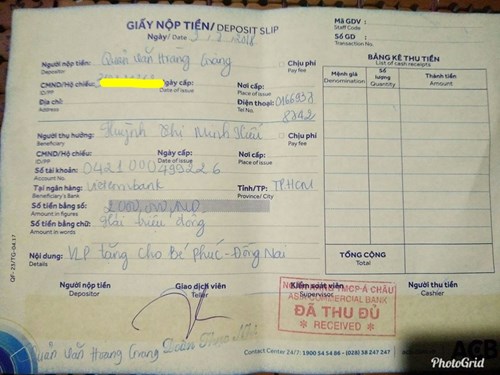 GIẤY NỘP TIỀN/ DEPOSIT SLIP
Ngày/ Date / /2018
Mã GDV :
Staff Code
Số GD :
Transaction No.
Người nộp tiền: Quản Văn Hoàng
Depositor
Chịu phí
Pay fee
CMND/Hộ chiếu: Ngày cấp: Nơi cấp:
ID/PP Date of issue Place of issue
Địa chỉ: Điện thoại: 0166937
Address Tel
8242
Người thụ hưởng: Huỳnh Thị Minh
Beneficiary
Chịu phí
Pay fee
CMND/Hộ chiếu: Ngày cấp: Nơi cấp:
ID/PP Date of issue Place of issue
Số tài khoản: 0421000499226
Account No.
Tại ngân hàng: Vietcombank Tỉnh/TP: TP.HCM
Beneficiary's Bank Province/ City
Số tiền bằng số: 2000,000,VND
Amount in figures
Số tiền bằng chữ: Hai triệu đồng
Amount in words
Nội dung: VLP tặng cho Bé Phúc - Đồng Nai
Details
BẢNG KÊ THU TIỀN
List of cash receipts
Mệnh giá Số lượng Thành tiền
Denomination Quantity Amount
TỔNG CỘNG
Total
Người nộp tiền Giao dịch viên Kiểm soát viên Người thu tiền
Depositor Teller Supervisor Cashier
TMCP Á CHÂU
COMMERCIAL BANK
ĐÃ THU ĐỦ
* RECEIVED *
Quản Văn Hoàng
QF-21/TQ-04.17
Contact Center 24/7: 1900 54 54 86 - (028) 38 247 247
PhotoGrid